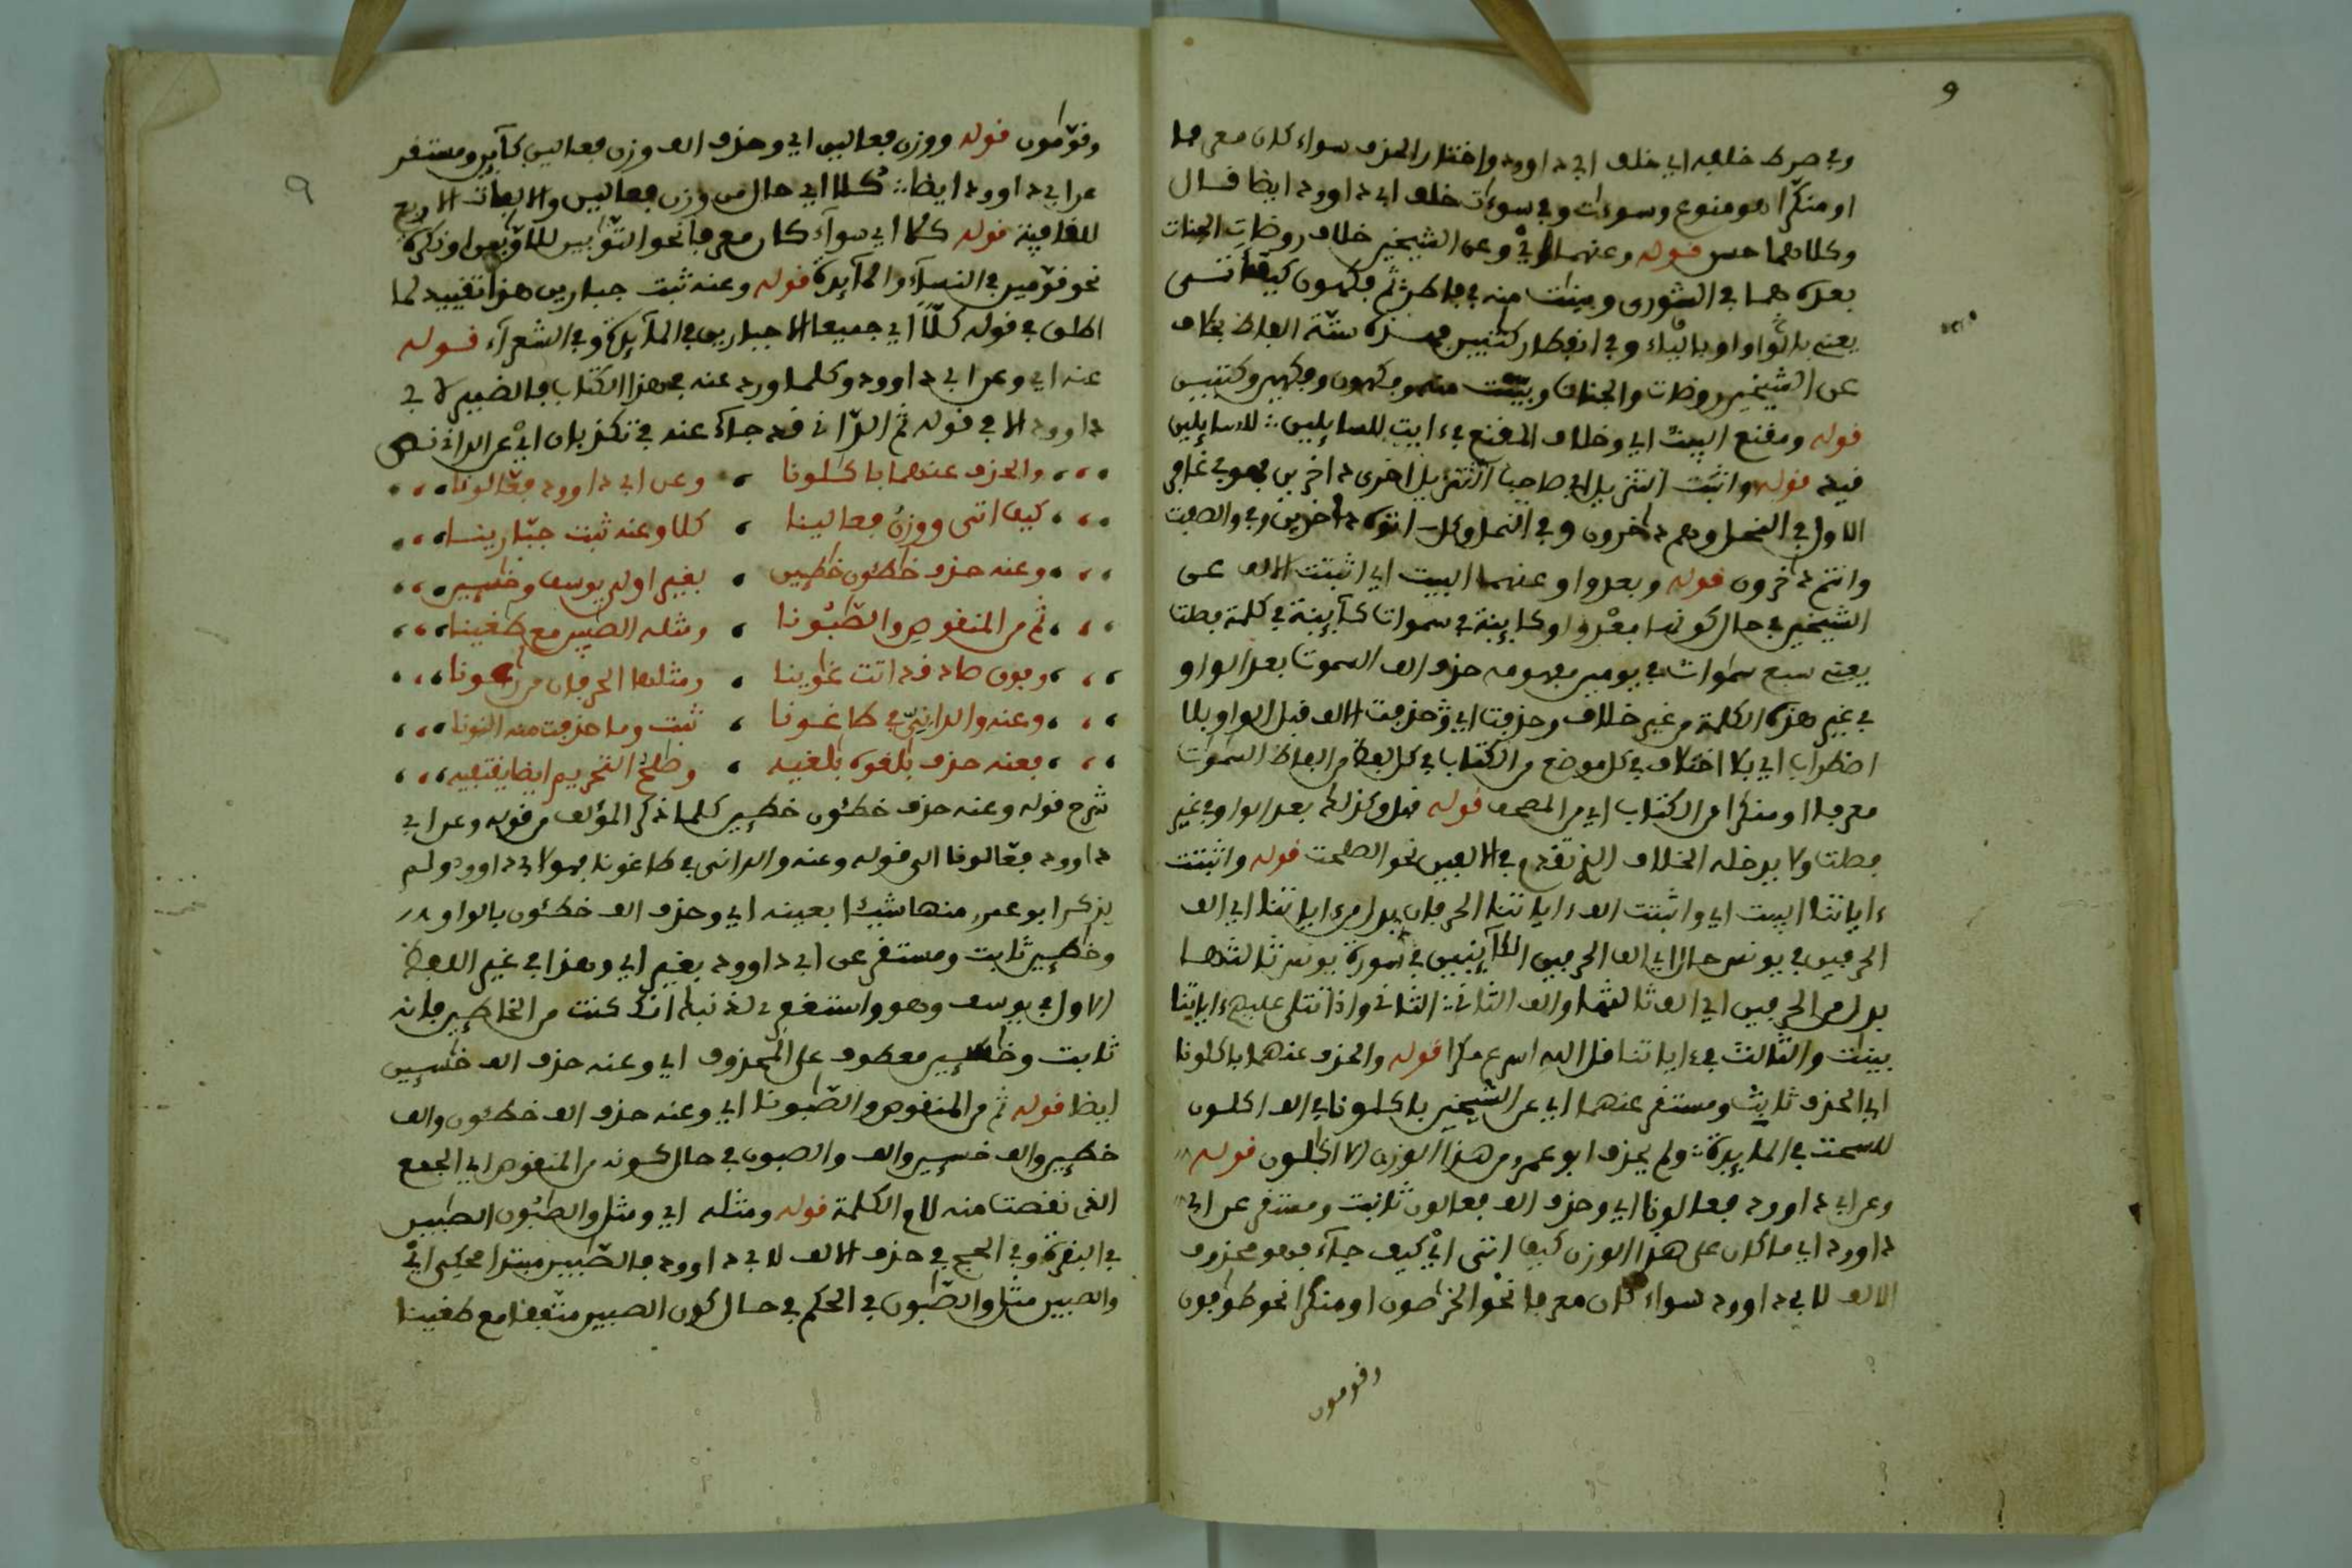 وفي صرط خلفه اي خلف ابي داوود واختار الحذف سواء كان معرفا
او منكرا هو ممنوع وسوءات وفي سوءات خلف ابي داوود ايضا قال
وكلاهما حسن قوله وعنهما وعن الشيخين خلاف روضات الجنات
بعده هما في الشورى وبينت منه في فاطر ثم فكهون كيف أتى
يعني بالواو او بالياء وفي انفطار كتبين هذه ستة الفاظ بخلاف
عن الشيخين روضات والجنات وبينت منه وفكهون وفكهين وكتبين
قوله ومقنع البيت اي وخلاف المقنع في ءايت للسايلين للسايلين
قيد قوله واثبت التنزيل اي صاحب التنزيل اخرى داخرين فهو في غافر
الاول في النحل وهم داخرون وفي النمل وكل اتوه داخرين وفي والصفت
وانتم داخرون قوله وبعد واو عنهما البيت اي اثبتت الالف عن
الشيخين في حال كونها بعد واو كاينة في سموات كاينة في كلمة فصلت
يعني سبع سموات في يومين مفهومه حذف الف السموت بعد الواو
في غير هذه الكلمة من غير خلاف وحذفت اي وحذفت الالف قبل الواو بلا
اضطراب اي بلا اختلاف في كل موضع من الكتاب في كل لفظ من الفاظ السموات
معرفا او منكرا من الكتاب اي من المصحف قوله قبل وكذلك بعد الواو في غير
فصلت ولا يدخله الخلاف الذي تقدم في الالفين نحو الصلحت قوله واثبتت
ءاياتنا البيت اي واثبتت الف ءاياتنا الحرفان بدل من ءاياتنا اي الف
الحرفين في يونس حال اي الف الحرفين الكاينين في سورة يونس ثالثها
بدل من الحرفين اي الف ثالثها والف الثاني الثاني واذا تتلى عليهم ءاياتنا
بينت والثالث في ءاياتنا قل الله اسرع مكرا قوله والحذف عنهما باكلونا
اي الحذف ثابت ومستقر عنهما اي عن الشيخين باكلونا في الف اكلون
للسحت في المايدة ولم يحذف ابو عمرو من هذا الوزن الا اكلون قوله
وعن ابي داوود فعالونا اي وحذف الف فعالون ثابت ومستقر عن ابي
داوود اي ما كان على هذا الوزن كيف اتى اي كيف جاء فهو محذوف
الالف لابي داوود سواء كان معرفا نحو الخراصون او منكرا نحو طوافون
وقومون
وقومون قوله ووزن فعالين اي وحذف الف وزن فعالين كاين ومستقر
عن ابي داوود ايضا كلا اي حال من وزن فعالين والالفات الاربع
للقافية قوله كلا اي سواء كان معرفا نحو التوابين للاوابين او نكرة
نحو قومين في النساء والمايدة قوله وعنه ثبت جبارين هذا تقييد لما
اطلق في قوله كلا اي جميعا الا جبارين في المايدة وفي الشعراء قوله
عنه اي وعن ابي داوود وكلما ورد عنه في هذا الكتاب فالضمير لابي
داوود الا في قوله ثم الداني قد جاء عنه في تكذبان اي عن الداني نص
والحذف عنهما باكلونا وعن ابي داوود فعالونا
كيف اتى ووزن فعالينا كلا وعنه ثبت جبارينا
وعنه حذف خاطئون خاطين بغير اولى يوسف وخاسين
ثم من المنقوص والصابونا ومثله الصابين مع طاغينا
وفوق صاد قد اتت غاوينا ومثلها الحرفان من راعونا
وعنه والداني في طاغونا ثبت وما حذفت منه النونا
فعنه حذف بالغوه بالغيه وصالح التحريم ايضا يقتفيه
شرح قوله وعنه حذف خطئون خطين كلما ذكر المؤلف من قوله وعن ابي
داوود فعالونا الى قوله وعنه والداني في طاغونا فهو لابي داوود ولم
يذكر ابو عمرو منها شيئا بعينه اي وحذف الف خطئون بالواو
وخطين ثابت ومستقر عن ابي داوود بغير اي وهذا في غير اللفظ
الاول في يوسف وهو واستغفري لذنبك انك كنت من الخاطين فانه
ثابت وخاسين معطوف على المحذوف اي وعنه حذف الف خاسين
ايضا قوله ثم من المنقوص والصابونا اي وعنه حذف الف خطئون والف
خطين والف خاسين والف والصبون في حال كونه من المنقوص اي الجمع
الذي نقصت منه لام الكلمة قوله ومثله اي ومثل والصابون الصابين
في البقرة وفي الحج في حذف الالف لابي داوود فالصابين مبتدا محكي اي
والصبين مثل والصابون في الحكم في حال كون الصبين متفقا مع طغينا